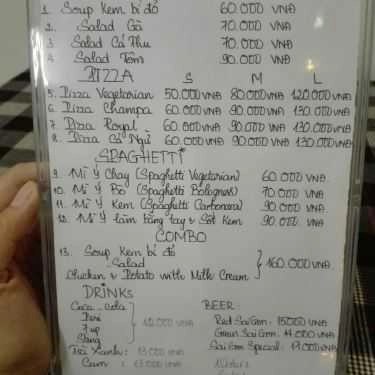 1. Soup Kem bí đỏ 60.000 VNĐ
2. Salad Gà 70.000 VNĐ
3. Salad Cá Thu 70.000 VNĐ
4. Salad Tôm 90.000 VNĐ
PIZZA S M L
5. Pizza Vegetarian 50.000 VNĐ 80.000 VNĐ 120.000 VNĐ
6. Pizza Champa 60.000 VNĐ 90.000 VNĐ 130.000 VNĐ
7. Pizza Royal 60.000 VNĐ 90.000 VNĐ 130.000 VNĐ
8. Pizza Cá Ngừ 60.000 VNĐ 90.000 VNĐ 130.000 VNĐ
SPAGHETTI
9. Mì Ý Chay (Spaghetti Vegetarian) 60.000 VNĐ
10. Mì Ý Bò (Spaghetti Bolognese) 70.000 VNĐ
11. Mì Ý Kem (Spaghetti Carbonara) 90.000 VNĐ
12. Mì Ý làm bằng tay & Sốt Kem 90.000 VNĐ
COMBO
13. Soup Kem bí đỏ
Salad
Chicken & Potato with Milk Cream
160.000 VNĐ
DRINKS
Coca-cola
Pepsi
7 up
12.000 VNĐ
Trà Xanh: 13.000 VNĐ
Cam: VNĐ
BEER:
Red SaiGon: 15000 VNĐ
Green SaiGon: 14.000 VNĐ
SaiGon Special: 17.000 VNĐ